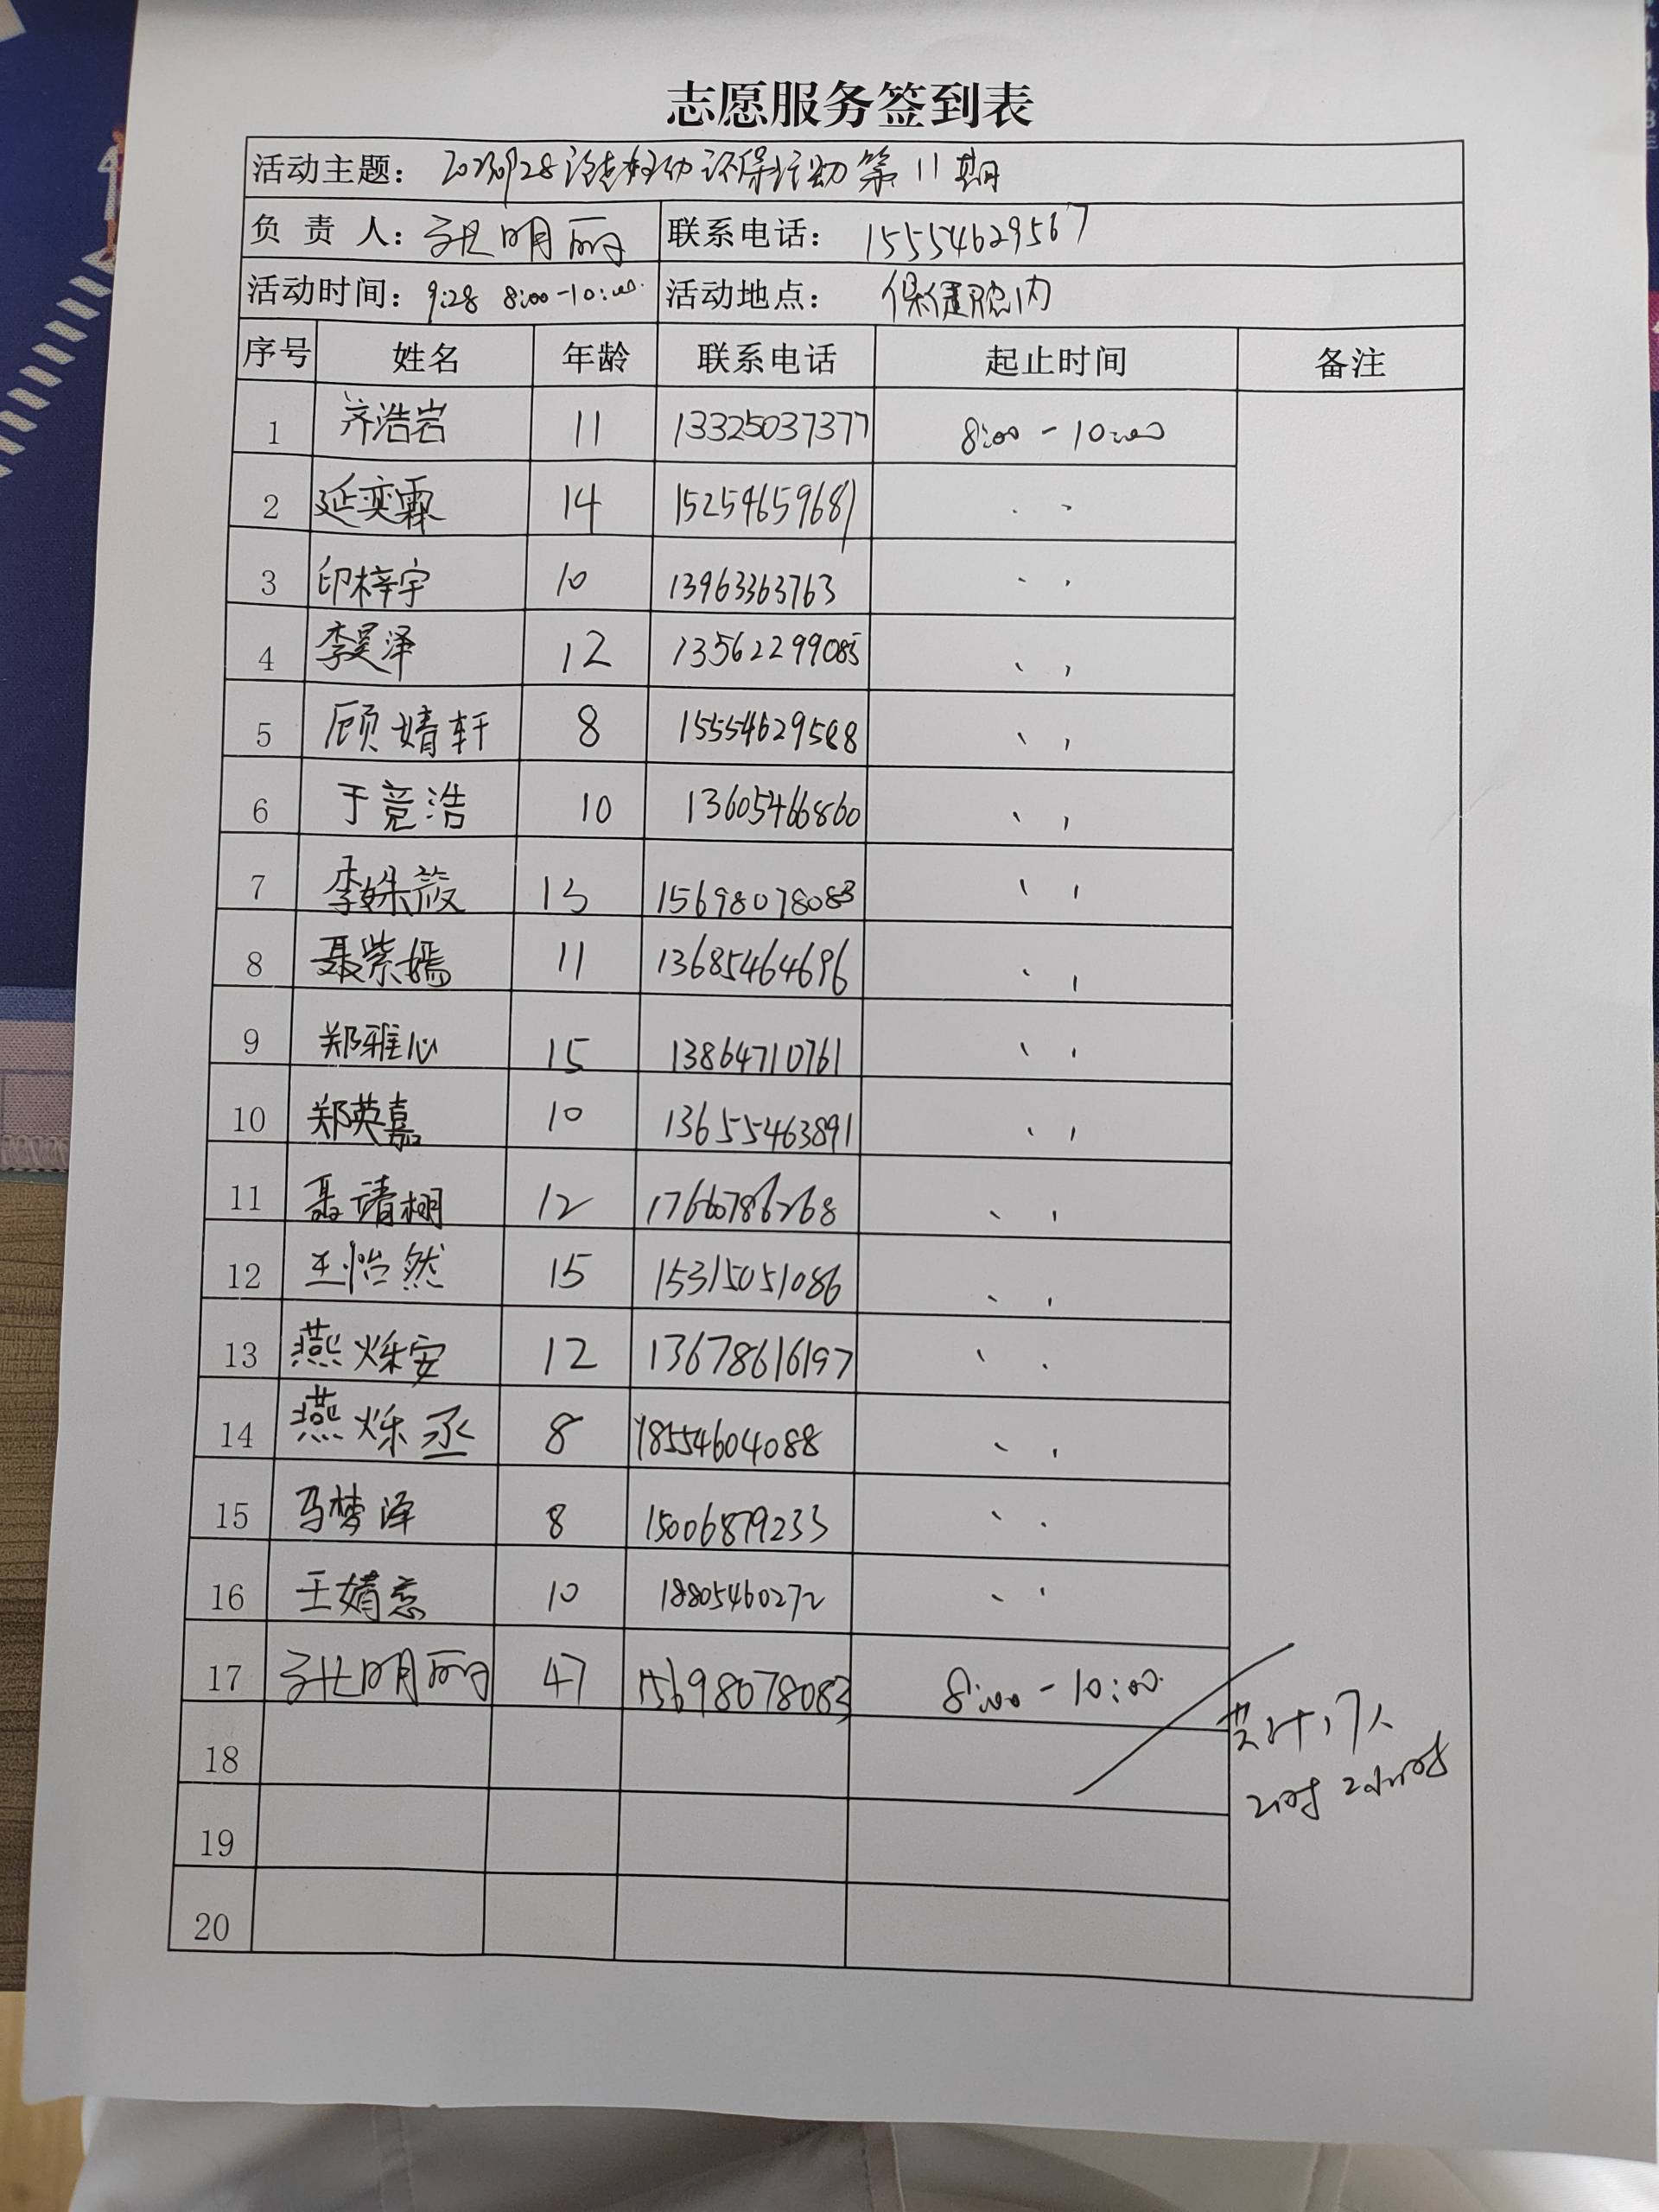 志愿服务签到表
活动主题： 第11期
负责人：张明丽 联系电话：15554629567
活动时间：9:28 8:00-10:00 活动地点：保健院内
序号 姓名 年龄 联系电话 起止时间 备注
1 齐浩岩 11 13325037377 8:00-10:00
2 延奕霖 14 15254659681 、、
3 印梓宇 10 13963363763 、、
4 李昊泽 12 13562299085 、、
5 顾婧轩 8 15554629588 、、
6 于竞浩 10 13605466860 、、
7 李姝筱 13 15698078083 、、
8 聂紫嫣 11 13685464696 、、
9 郑雅心 15 13864710761 、、
10 郑英嘉 10 13655463891 、、
11 聂靖栩 12 17660786268 、、
12 王怡然 15 15315051086 、、
13 燕烁安 12 13678616197 、、
14 燕烁丞 8 18554604088 、、
15 马梦泽 8 15006879233 、、
16 王婧 10 18805460272 、、
17 张明丽 47 15698078083 8:00-10:00
共计17人
2小时
18
19
20